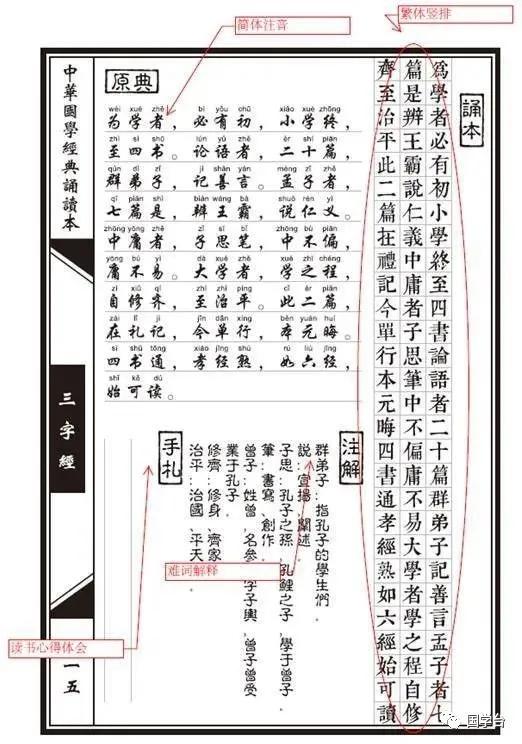 简体注音
繁体竖排
誦本
爲學者必有初小學終至四書論語者二十篇群弟子記善言孟子者七
篇是辨王霸說仁義中庸者子思筆中不偏庸不易大學者學之程自修
齊至治平此二篇在禮記今單行本元晦四書通孝經熟如六經始可讀
原典
wéi xué zhě bì yǒu chū xiǎo xué zhōng
为学者，必有初，小学终，
zhì sì shū lún yǔ zhě èr shí piān
至四书。论语者，二十篇，
qún dì zǐ jì shàn yán mèng zǐ zhě
群弟子，记善言。孟子者，
qī piān shì biàn wáng bà shuō rén yì
七篇是，辨王霸，说仁义。
zhōng yōng zhě zǐ sī bǐ zhōng bù piān
中庸者，子思笔，中不偏，
yōng bù yì dà xué zhě xué zhī chéng
庸不易。大学者，学之程，
zì xiū qí zhì zhì píng cǐ èr piān
自修齐，至治平。此二篇，
zài lǐ jì jīn dān xíng běn yuán huì
在礼记，今单行，本元晦。
sì shū tōng xiào jīng shú rú liù jīng
四书通，孝经熟，如六经，
shǐ kě dú
始可读。
注解
群弟子：指孔子的學生們。
說：宣揚、闡述。
子思：孔子之孫，孔鯉之子，學于曾子。
筆：書寫、創作。
曾子：姓曾，名參，字子輿，曾子曾受
業于孔子。
修齊：修身、齊家
治平：治國、平天
难词解释
手札
读书心得体会
中華國學經典誦讀本
三字經
一五
国学台